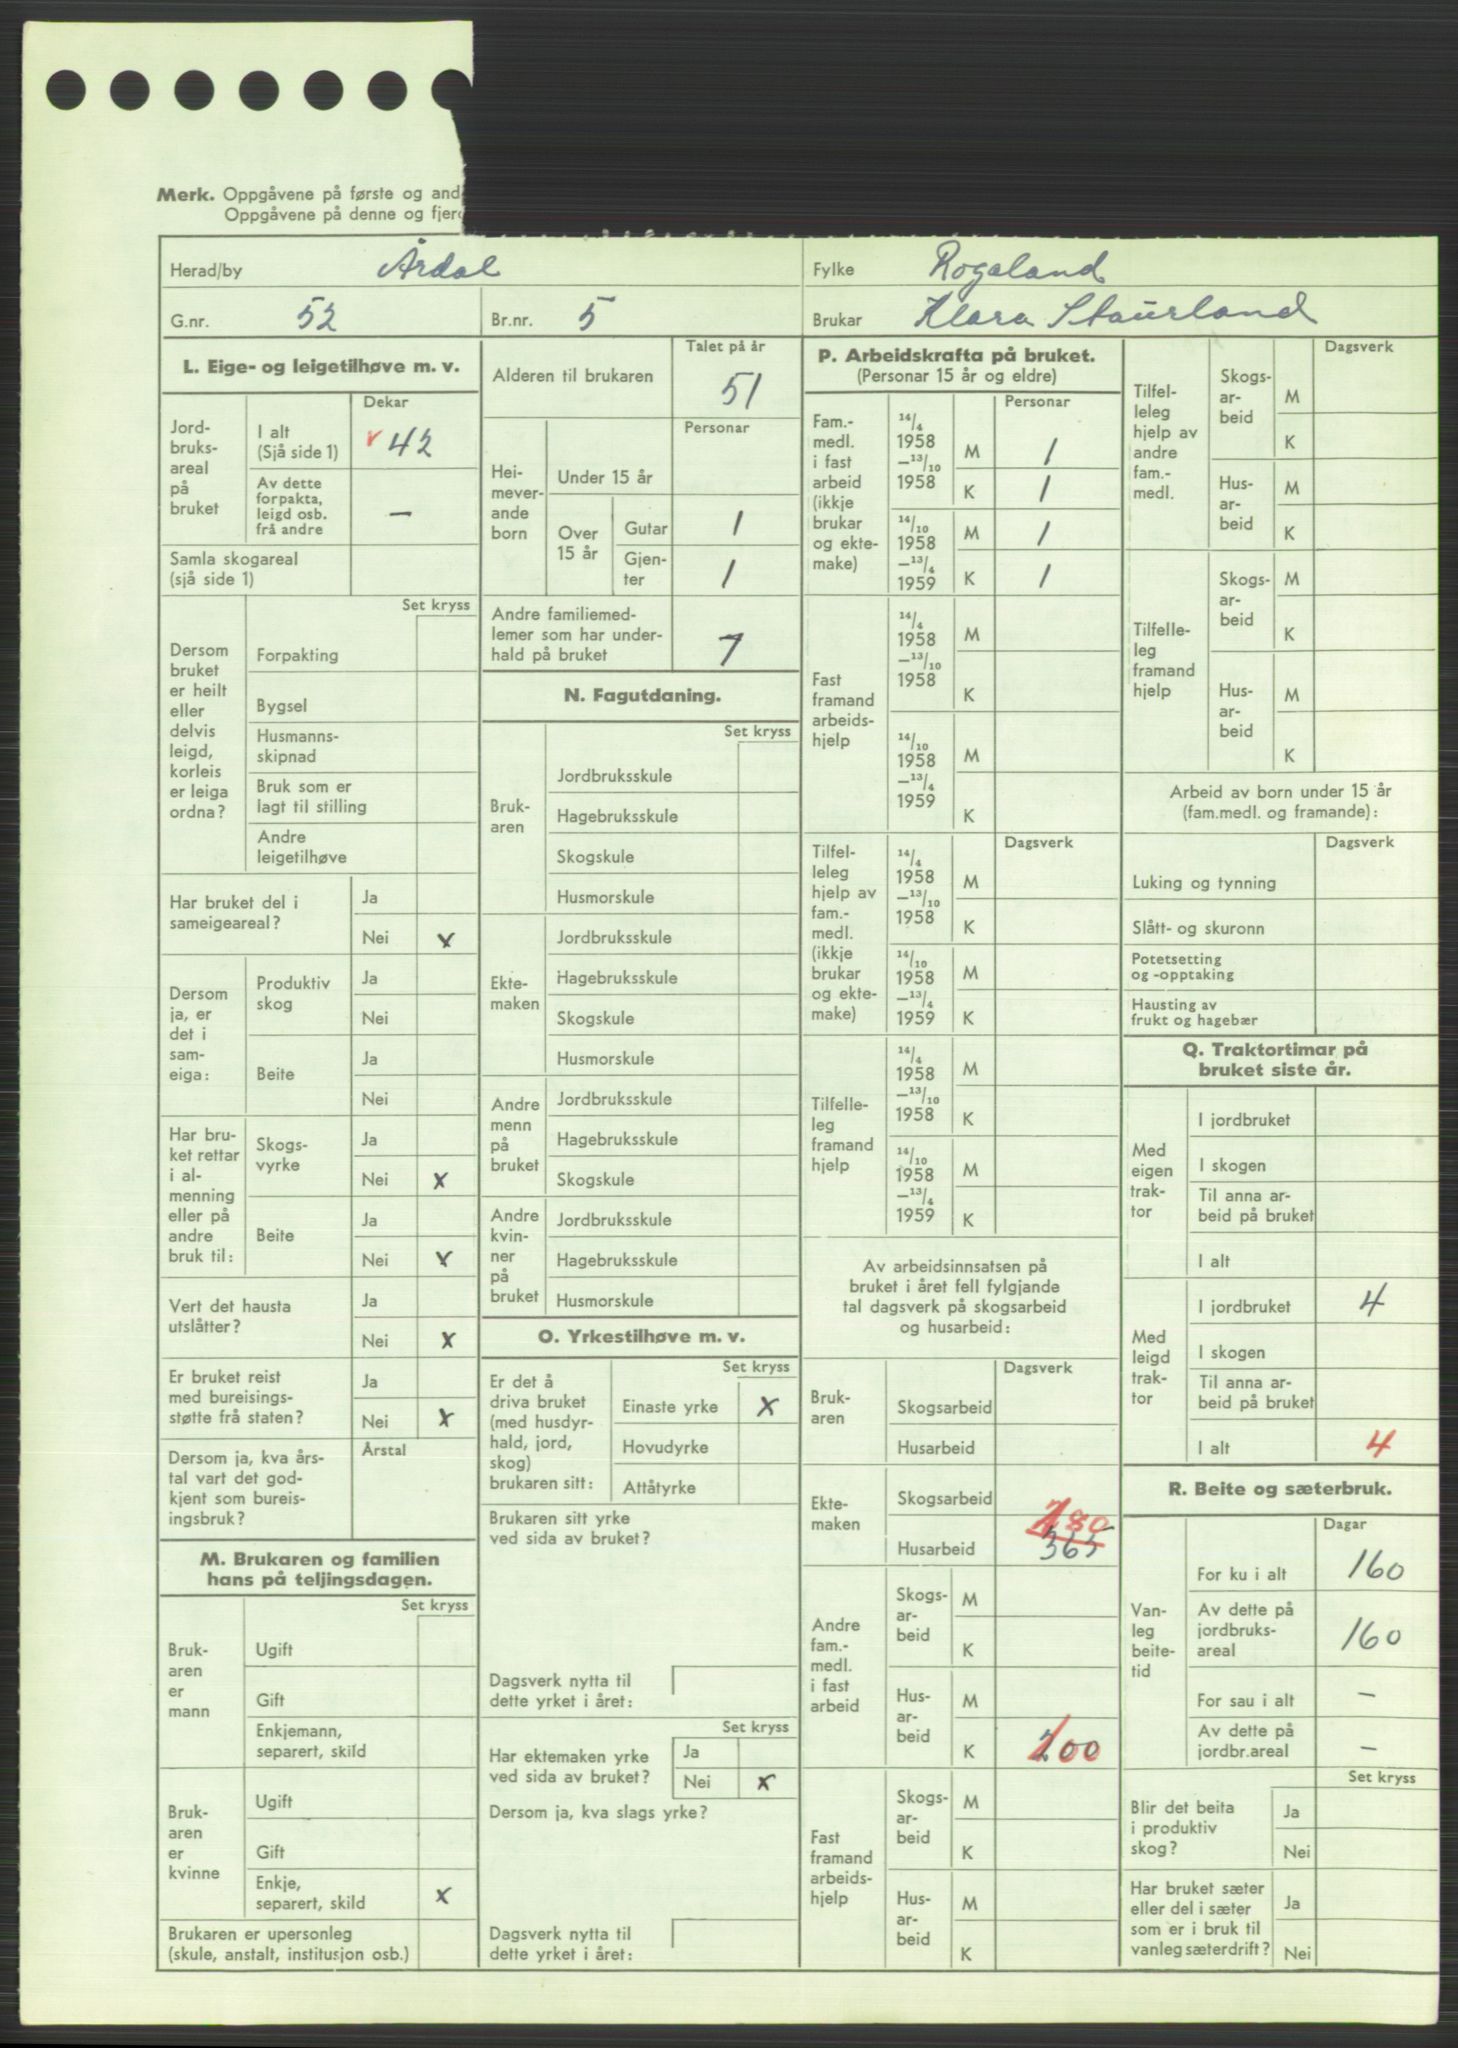 Merk. Oppgåvene på første og and
Oppgåvene på denne og fjer
Herad/by Årdal
Fylke Rogaland
G.nr. 52
Br.nr. 5
Brukar Klara Staurland
L. Eige- og leigetilhøve m. v.
Dekar
Jord-
bruks-
areal
på
bruket
I alt
(Sjå side 1) v 42
Av dette
forpakta,
leigd osb.
frå andre —
Samla skogareal
(sjå side 1)
Set kryss
Dersom
bruket
er heilt
eller
delvis
leigd,
korleis
er leiga
ordna?
Forpakting
Bygsel
Husmanns-
skipnad
Bruk som er
lagt til stilling
Andre
leigetilhøve
Har bruket del i
sameigeareal?
Ja
Nei x
Dersom
ja, er
det i
sam-
eiga:
Produktiv
skog
Ja
Nei
Beite
Ja
Nei
Har bru-
ket rettar
i al-
menning
eller på
andre
bruk til:
Skogs-
vyrke
Ja
Nei x
Beite
Ja
Nei x
Vert det hausta
utslåtter?
Ja
Nei x
Er bruket reist
med bureisings-
støtte frå staten?
Ja
Nei x
Dersom ja, kva års-
tal vart det god-
kjent som bureis-
ingsbruk?
Årstal
M. Brukaren og familien
hans på teljingsdagen.
Set kryss
Bruk-
aren
er
mann
Ugift
Gift
Enkjemann,
separert, skild
Bruk-
aren
er
kvinne
Ugift
Gift
Enkje,
separert, skild x
Brukaren er upersonleg
(skule, anstalt, institusjon osb.)
Talet på år
Alderen til brukaren 51
Personar
Hei-
mever-
ande
born
Under 15 år
Over
15 år
Gutar 1
Gjen-
ter 1
Andre familiemed-
lemer som har under-
hald på bruket 7
N. Fagutdaning.
Set kryss
Bruk-
aren
Jordbruksskule
Hagebruksskule
Skogskule
Husmorskule
Ekte-
maken
Jordbruksskule
Hagebruksskule
Skogskule
Husmorskule
Andre
menn
på
bruket
Jordbruksskule
Hagebruksskule
Skogskule
Andre
kvin-
ner
på
bruket
Jordbruksskule
Hagebruksskule
Husmorskule
O. Yrkestilhøve m. v.
Set kryss
Er det å
driva bruket
(med husdyr-
hald, jord,
skog)
brukaren sitt:
Einaste yrke x
Hovudyrke
Attåtyrke
Brukaren sitt yrke
ved sida av bruket?
Dagsverk nytta til
dette yrket i året:
Set kryss
Har ektemaken yrke
ved sida av bruket?
Ja
Nei x
Dersom ja, kva slags yrke?
Dagsverk nytta til
dette yrket i året:
P. Arbeidskrafta på bruket.
(Personar 15 år og eldre)
Personar
Fam.-
medl.
i fast
arbeid
(ikkje
brukar
og ekte-
make)
14/4
1958
—13/10
1958
M 1
K 1
14/10
1958
—13/4
1959
M 1
K 1
Fast
framand
arbeids-
hjelp
14/4
1958
—13/10
1958
M
K
14/10
1958
—13/4
1959
M
K
Dagsverk
Tilfel-
leleg
hjelp av
fam.-
medl.
(ikkje
brukar
og ekte-
make)
14/4
1958
—13/10
1958
M
K
14/10
1958
—13/4
1959
M
K
Tilfelle-
leg
framand
hjelp
14/4
1958
—13/10
1958
M
K
14/10
1958
—13/4
1959
M
K
Av arbeidsinnsatsen på
bruket i året fell fylgjande
tal dagsverk på skogsarbeid
og husarbeid:
Dagsverk
Bruk-
aren
Skogsarbeid
Husarbeid
Ekte-
maken
Skogsarbeid
180
Husarbeid 365
Andre
fam.-
medl.
i fast
arbeid
Skogs-
ar-
beid
M
K
Hus-
ar-
beid
M
K 100
Fast
framand
arbeids-
hjelp
Skogs-
ar-
beid
M
K
Hus-
ar-
beid
M
K
Dagsverk
Tilfel-
leleg
hjelp av
andre
fam.-
medl.
Skogs-
ar-
beid
M
K
Hus-
ar-
beid
M
K
Tilfelle-
leg
framand
hjelp
Skogs-
ar-
beid
M
K
Hus-
ar-
beid
M
K
Arbeid av born under 15 år
(fam.medl. og framande):
Dagsverk
Luking og tynning
Slått- og skuronn
Potetsetting
og -opptaking
Hausting av
frukt og hagebær
Q. Traktortimar på
bruket siste år.
Med
eigen
trak-
tor
I jordbruket
I skogen
Til anna ar-
beid på bruket
I alt
Med
leigd
trak-
tor
I jordbruket 4
I skogen
Til anna ar-
beid på bruket
I alt 4
R. Beite og sæterbruk.
Dagar
Van-
leg
beite-
tid
For ku i alt 160
Av dette på
jordbruks-
areal 160
For sau i alt —
Av dette på
jordbr.areal —
Set kryss
Blir det beita
i produktiv
skog?
Ja
Nei
Har bruket sæter
eller del i sæter
som er i bruk til
vanleg sæterdrift?
Ja
Nei